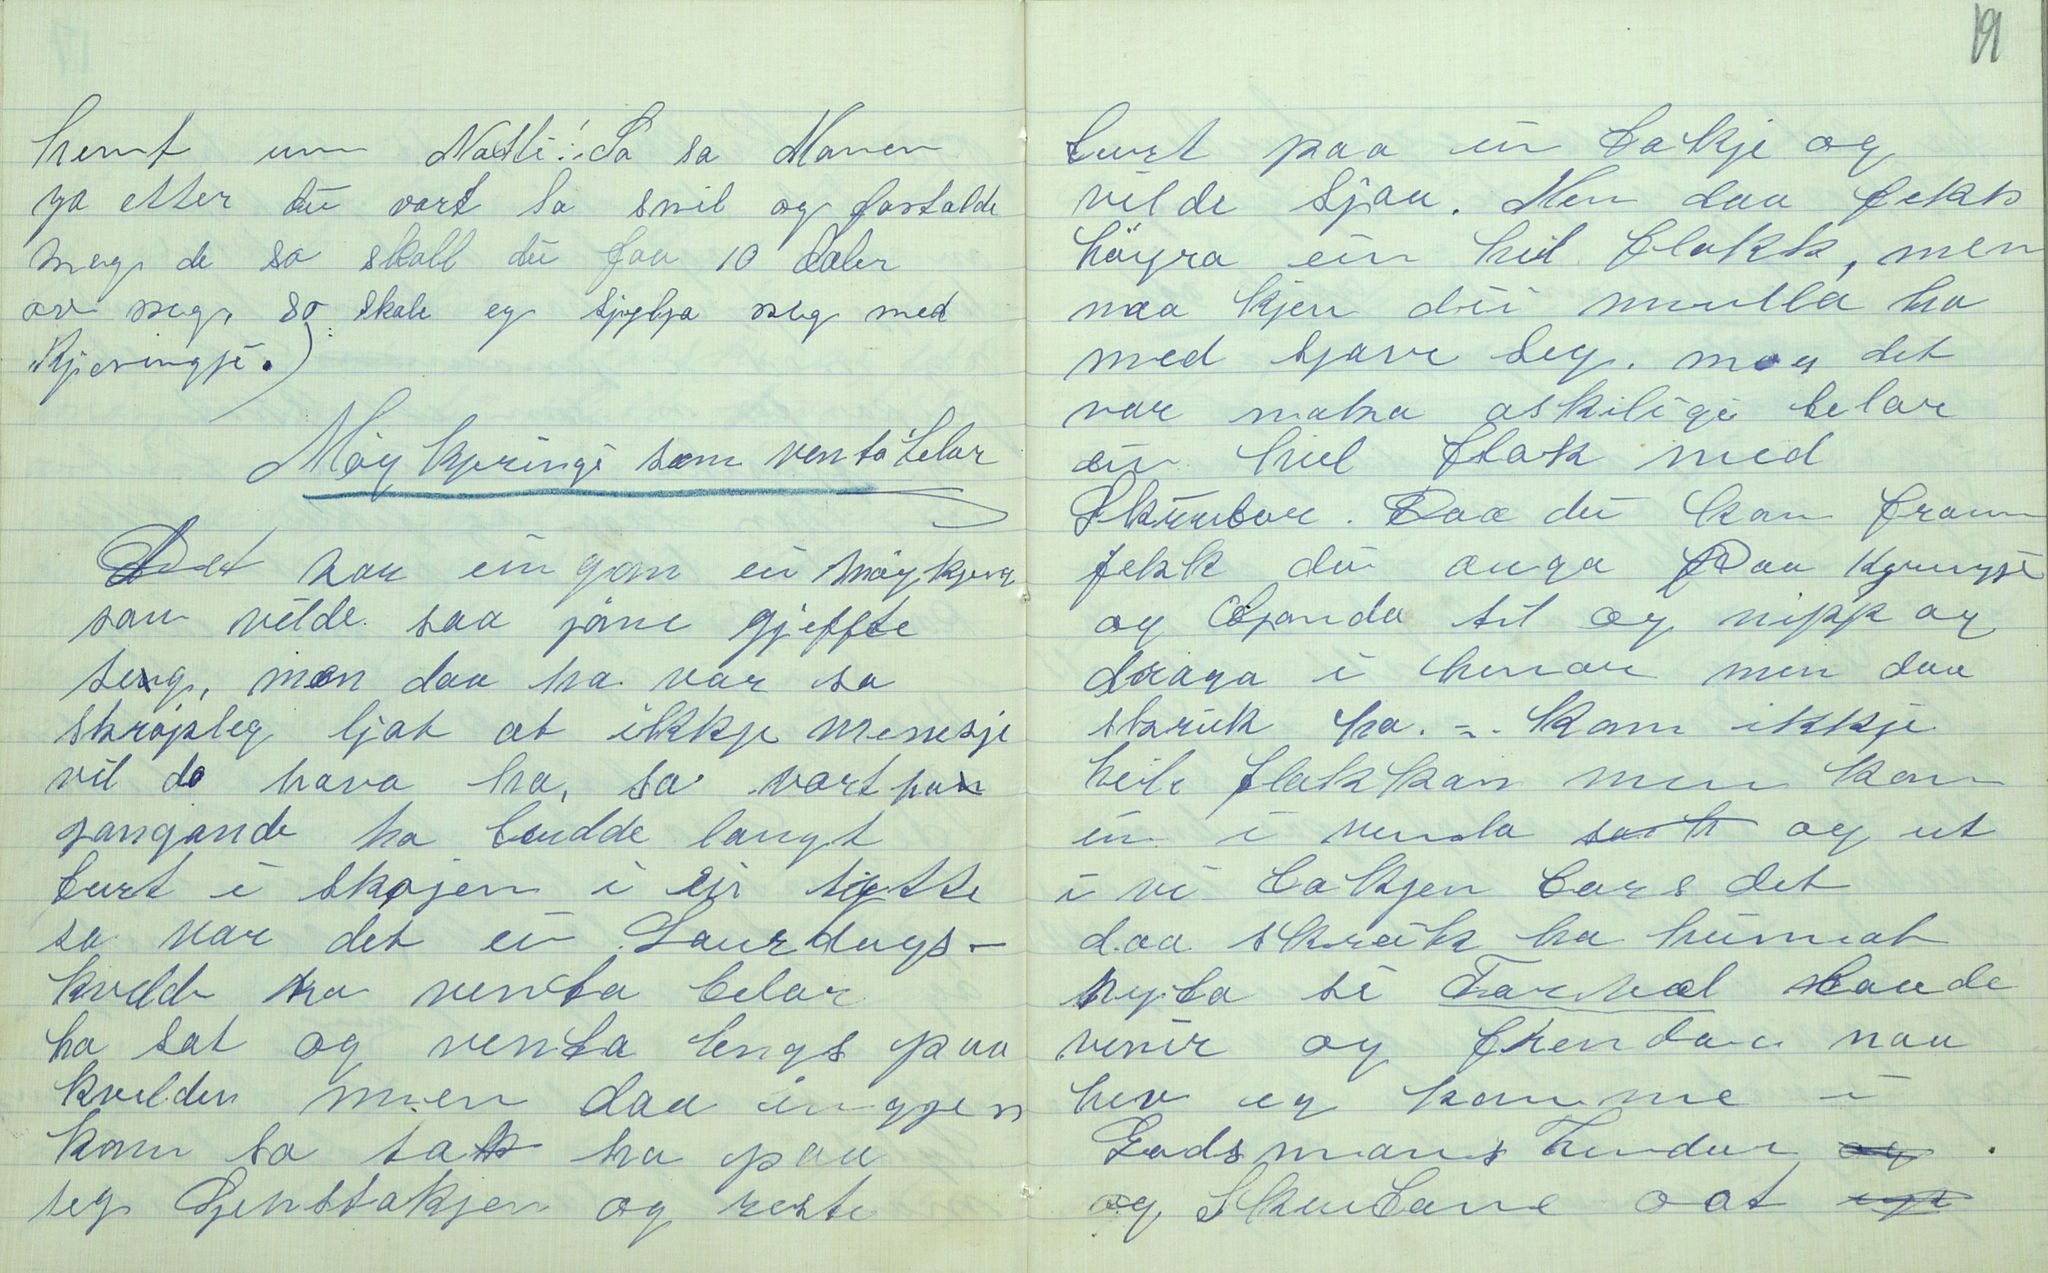 hemt um Natti! Sa sa Manen
ya etter du vart so snil og fortalde
meg de so skall du faa 10 daler
av meg, so skale eg sjølpa meg med
Kjeringji.)
Møykjeringi som venta belar
Det var ein gom ei møykjering
som vilde saa jøne gjeffte
seg, men daa ha var so
skrøpleg ljot at ikkje menesje
vil de hava ha, so vart
gangande ha budde langt
burt i skojen i ei hytte
so var det ei Laurdags-
kveld ha venta belar
ha sat og venta lengs paa
kvelden men daa inggen
kom so tok ha paa
seg Penstakjen og reste
19
burt paa ein bakje og
vilde sjaa. Men daa fekk
høyra ein heil flokk, men
naa kjem dei mulla ha
med sjave seg. mog det
var matra askiligi belar
ein heil flok med
Skrubar. Daa dei kom fram
fekk dei auga paa Kjeringji
og til og nipp og
draga i henar men daa
skreik ha. - Kom ikkje
heile flokkan men kom
ein i venda og ut
i vi bakjen bars det
daa skreik ha himmat
hyta se Farvæl baade
venir og frendar naa
hev eg komme i
Gods mans hendur og
og Skrubane aat